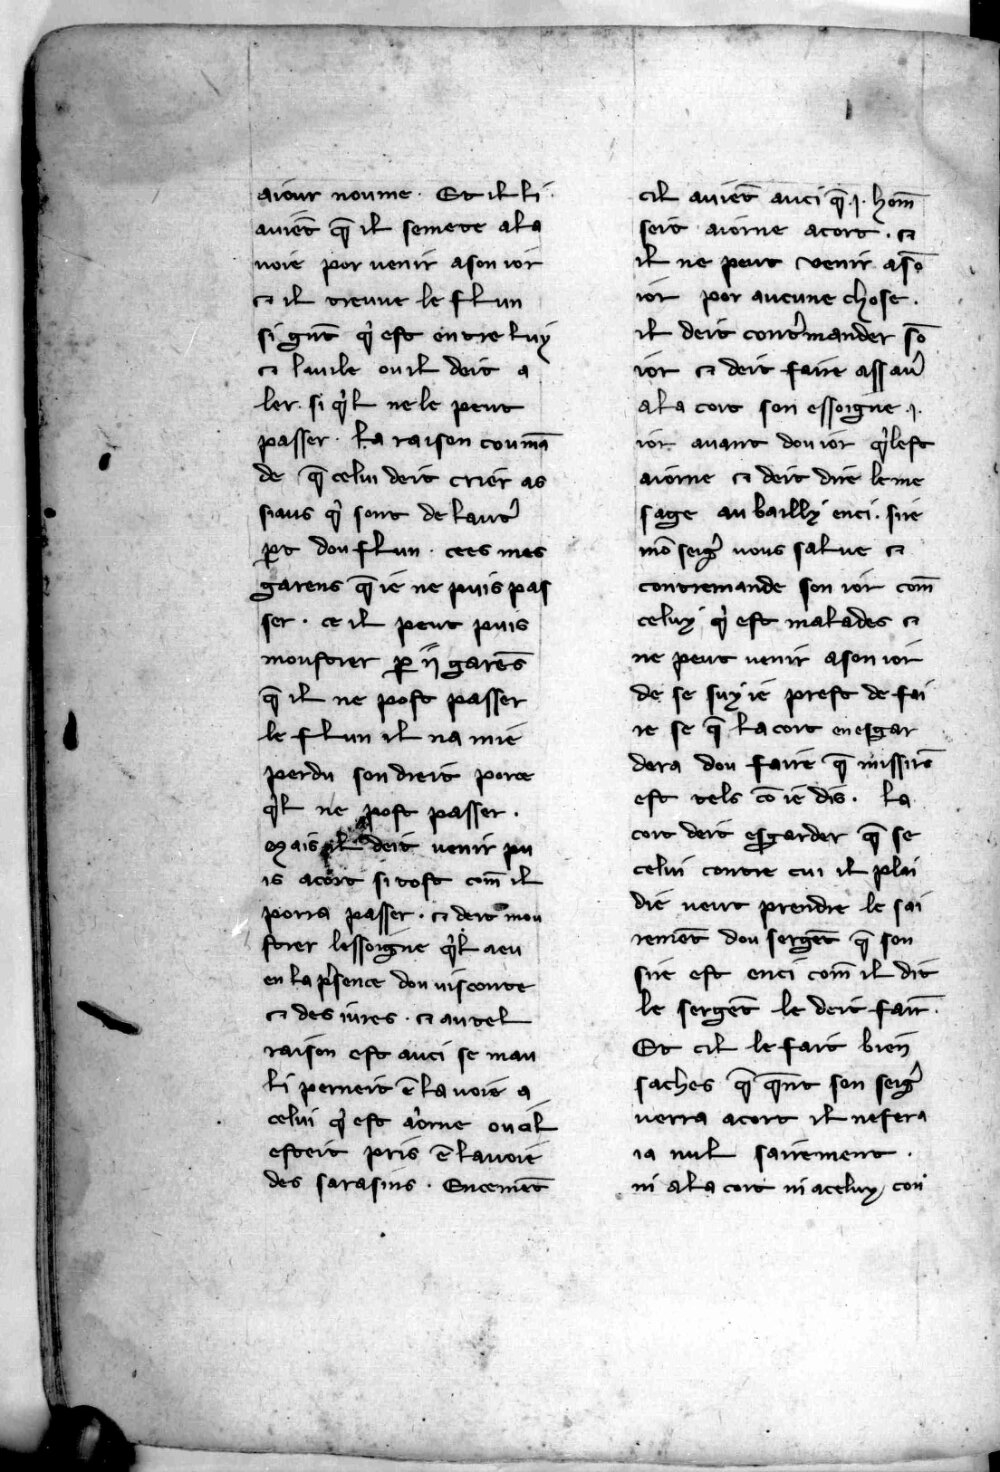 aiour noume · Et il li
auiet̄ q̄ il semete ala
uoie por uenir ason ior
⁊ il treuue le flun
si gnt̄ qͥ est entre luy
⁊ lauile ouil doit a
ler · si qͥl nele peut
passer · La raison coumā
de q̄ celui deit crier as
siaus qͥ sont de lautͬ
ꝑt dou flun · cees mes
garens q̄ ie ne puis pas
ser · ce il peut puis
moustrer ꝑ ij garēs
q̄ il ne post passer
le flun il na mie
perdu son dreit porce
qͥl ne post passer ·
Mais il deit uenir pu
is acort si tost com̄ il
porra passer · ⁊ deit mou
strer lessoigne qͥl aeu
en la pͬsence dou uisconte
⁊ des iures · ⁊ autel
raison est auci se mau
li perneit ē la uoie a
celui qͥ est aiorne ou cil
esteit pris ē lauoie
des sarasins · Encement̄
cil auiet̄ auci q̄ · j · hom̄
seit aiorne acort · ⁊
il ne peut venir asō
ior por aucune chose ·
il deit contͬmander sō
ior ⁊ deit faire assauͬ
ala cort son essoigne · j ·
ior auant dou ior qͥlest
aiorne ⁊ deit dire leme
sage au bailly enci · sire
mō seigͬ uous salue ⁊
contremande son ior com̄
celuy qͥ est malades ⁊
ne peut uenir ason ior
de se suy ie prest de fai
re se q̄ la cort enesgar
dera dou faire q̄ missire
est tels cō ie dis · La
cort deit esgarder q̄ se
celui contre cui il plai
die ueut prendre le sai
remēt dou sergēt q̄ son
sire est enci com̄ il dit
le sergēt le deit fair̄ ·
Et cil le fait bien
saches q̄ q̄nt son seigͬ
uerra acort il nefera
ia nul sairement ·
ni ala cort ni aceluy con